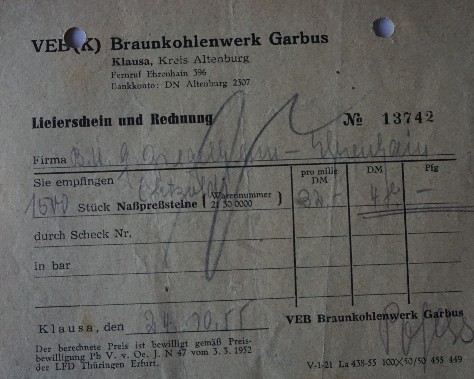 VEB(K) Braunkohlenwerk Garbus
Klausa, Kreis Altenburg
Fernruf Ehrenhain 396
Bankkonto: DN Altenburg 2307
Lieferschein und Rechnung № 13742
Firma
Sie empfingen pro mille DM DM Pfg
1500 Stück Naßpreßsteine (Warennummer 21 30 0000)
durch Scheck Nr.
in bar
Klausa, den 24. 10. 55 VEB Braunkohlenwerk Garbus
Der berechnete Preis ist bewilligt gemäß Preis-
bewilligung Pb V. v. Oe. J. N 47 vom 3. 3. 1952
der LFD Thüringen Erfurt.
V-1-21 La 438-55 100×50/50 455 449